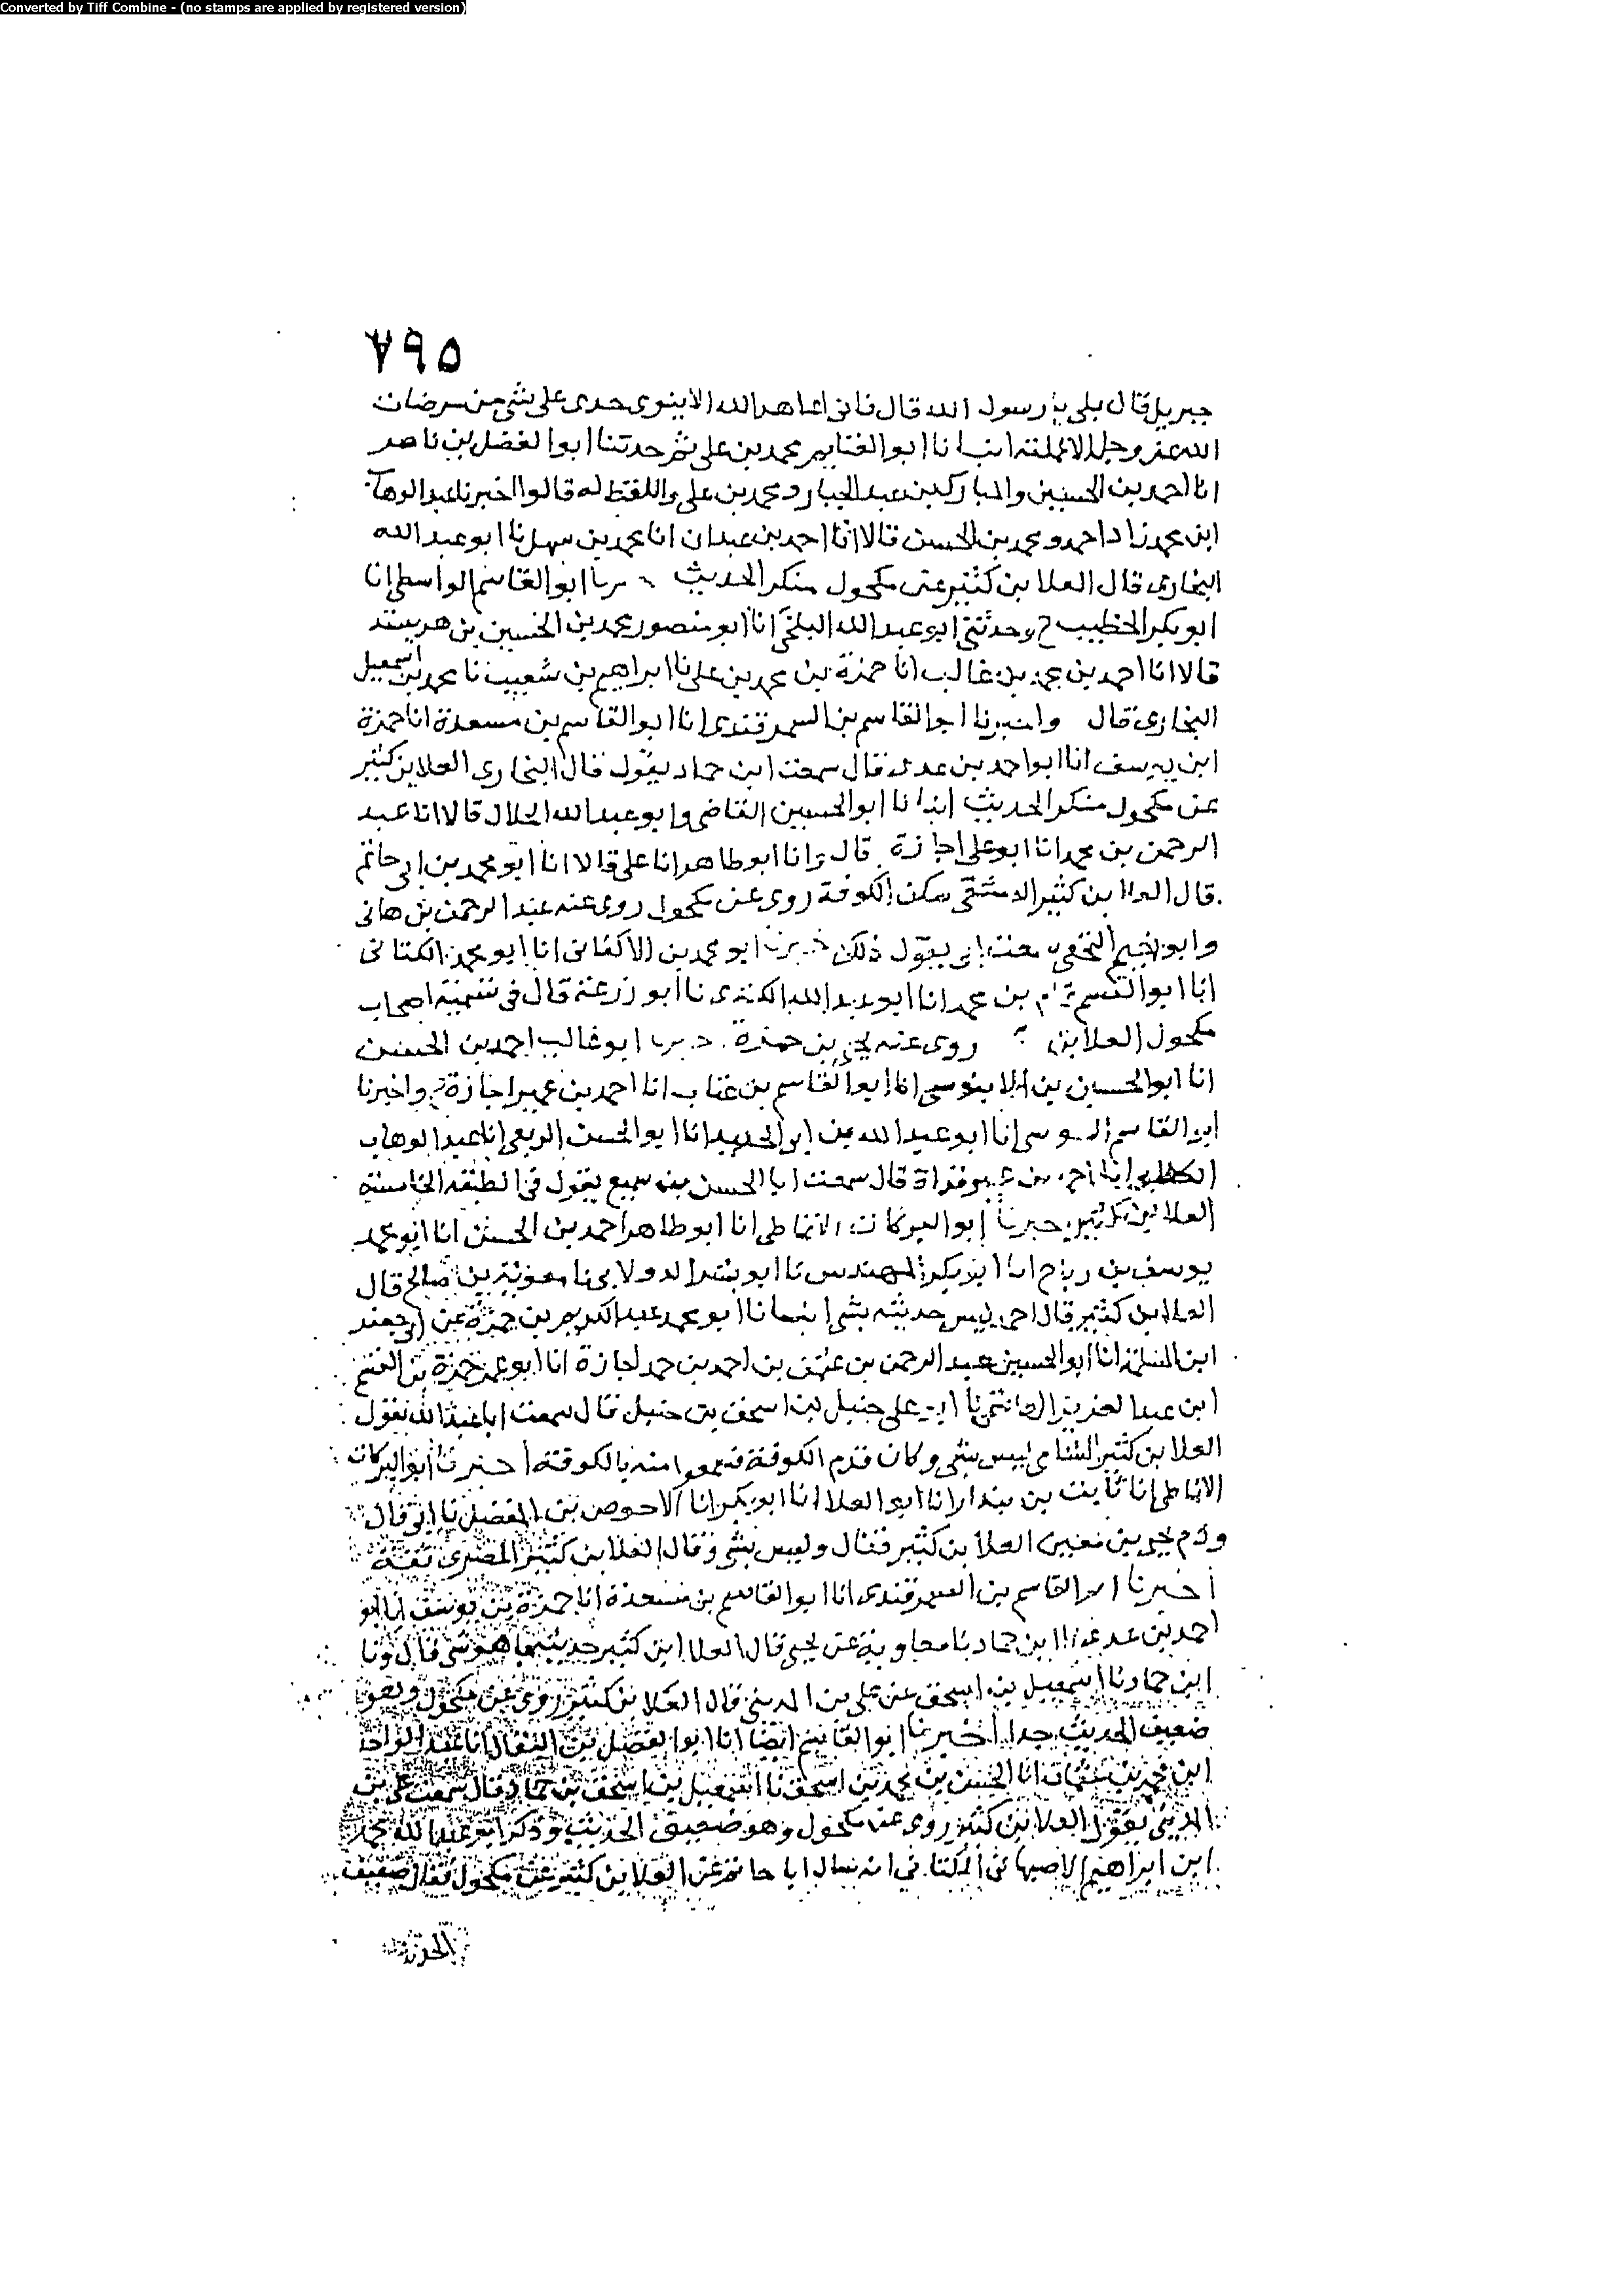 Converted by Tiff Combine - (no stamps are applied by registered version)
٧٩٥
جبريل قال بلى يا رسول الله قال فانى اعاهد الله لا ينوى حدى على شى من مرضات
الله عز وجل الا انا ابو الغنايم محمد بن على ثم حدثنا ابو الفضل بن ناصر
انا احمد بن الحسين والمبارك بن عبد الجبار ومحمد بن على واللفظ له قالوا اخبرنا عبد الوهاب
ابن محمد زاد احمد ومحمد بن الحسن قالا انا احمد بن عبدان انا محمد بن سهل نا ابو عبد الله
البخارى قال العلا بن كثير عن مكحول منكر الحديث ابو القاسم الواسطى انا
ابو بكر الخطيب ح وحدثنى ابو عبد الله البلخى انا ابو منصور محمد بن الحسين بن
قالا انا احمد بن محمد بن غالب انا حمزة بن محمد بن على نا ابراهيم بن شعيب نا محمد بن اسمعيل
البخارى قال واخبرنا ابو القاسم بن السمرقندى انا ابو القاسم بن مسعدة انا حمزة
ابن يوسف انا ابو احمد بن عدى قال سمعت ابن حماد يقول قال البخارى العلا بن كثير
عن مكحول منكر الحديث ابو الحسين القاضى وابو عبد الله الخلال قالا انا عبد
الرحمن بن محمد انا ابو على اجازة قال وانا ابو طاهر انا على قالا انا ابو محمد بن ابى حاتم
قال العلا بن كثير الدمشقى سكن الكوفة روى عن مكحول روى عنه عبد الرحمن بن هانى
وابو نعيم النخعى سمعت ابى يقول ذلك ابو محمد بن الاكفانى انا ابو محمد الكتانى
انا ابو القسم تمام بن محمد انا ابو عبد الله الكندى نا ابو زرعة قال فى تسمية اصحاب
مكحول العلا بن روى عنه يحيى بن حمزة ابو غالب احمد بن الحسن
انا ابو الحسين بن الابنوسى انا ابو القاسم بن عتاب انا احمد بن عمير اجازة واخبرنا
ابو القاسم السوسى انا ابو عبد الله بن ابى الحديد انا ابو الحسن الربعى انا عبد الوهاب
الكلابى انا احمد بن عمير قراة قال سمعت ابا الحسن بن سميع يقول فى الطبقة الخامسة
العلا بن كثير ابو البركات الانماطى انا ابو طاهر احمد بن الحسن انا ابو محمد
يوسف بن رباح انا ابو بكر المهندس نا ابو بشر الدولابى نا معوية بن صالح قال
العلا بن كثير قال احمد ليس حديثه بشى انبانا ابو محمد عبد الكريم بن حمزة عن ابى جعفر
ابن المسلمة انا ابو الحسين عبد الرحمن بن عمر بن احمد بن حمة اجازة انا ابو عمر حمزة بن القسم
ابن عبد العزيز الهاشمى نا ابو على حنبل بن اسحق بن حنبل قال سمعت ابا عبد الله يقول
العلا بن كثير الشامى ليس بشى وكان قدم الكوفة فسمعوا منه بالكوفة اخبرنا ابو البركات
الانماطى انا ثابت بن بندار انا ابو العلا انا ابو بكر انا الاحوص بن المفضل نا ابى قال
وذم يحيى بن معين العلا بن كثير فقال وليس بشى وقال العلا بن كثير المصرى ثقة
اخبرنا ابو القاسم بن السمرقندى انا ابو القاسم بن مسعدة انا حمزة بن يوسف انا ابو
احمد بن عدى نا ابن حماد نا معاوية عن يحيى قال العلا بن كثير حديثهما هو شى قال ونا
ابن حماد نا اسمعيل بن اسحق عن على بن المدينى قال العلا بن كثير روى عن مكحول وهو
ضعيف الحديث جدا اخبرنا ابو القاسم ايضا انا ابو الفضل بن البقال انا عبد الواحد
ابن محمد بن عثمان انا الحسن بن محمد بن اسحق نا اسمعيل بن اسحق بن حماد قال سمعت على بن
المدينى يقول العلا بن كثير روى عن مكحول وهو ضعيف الحديث وذكر ابو عبد الله محمد
ابن ابراهيم الاصبهانى الكتانى انه سال ابا حاتم عن العلا بن كثير عن مكحول فقال ضعيف
الحديث